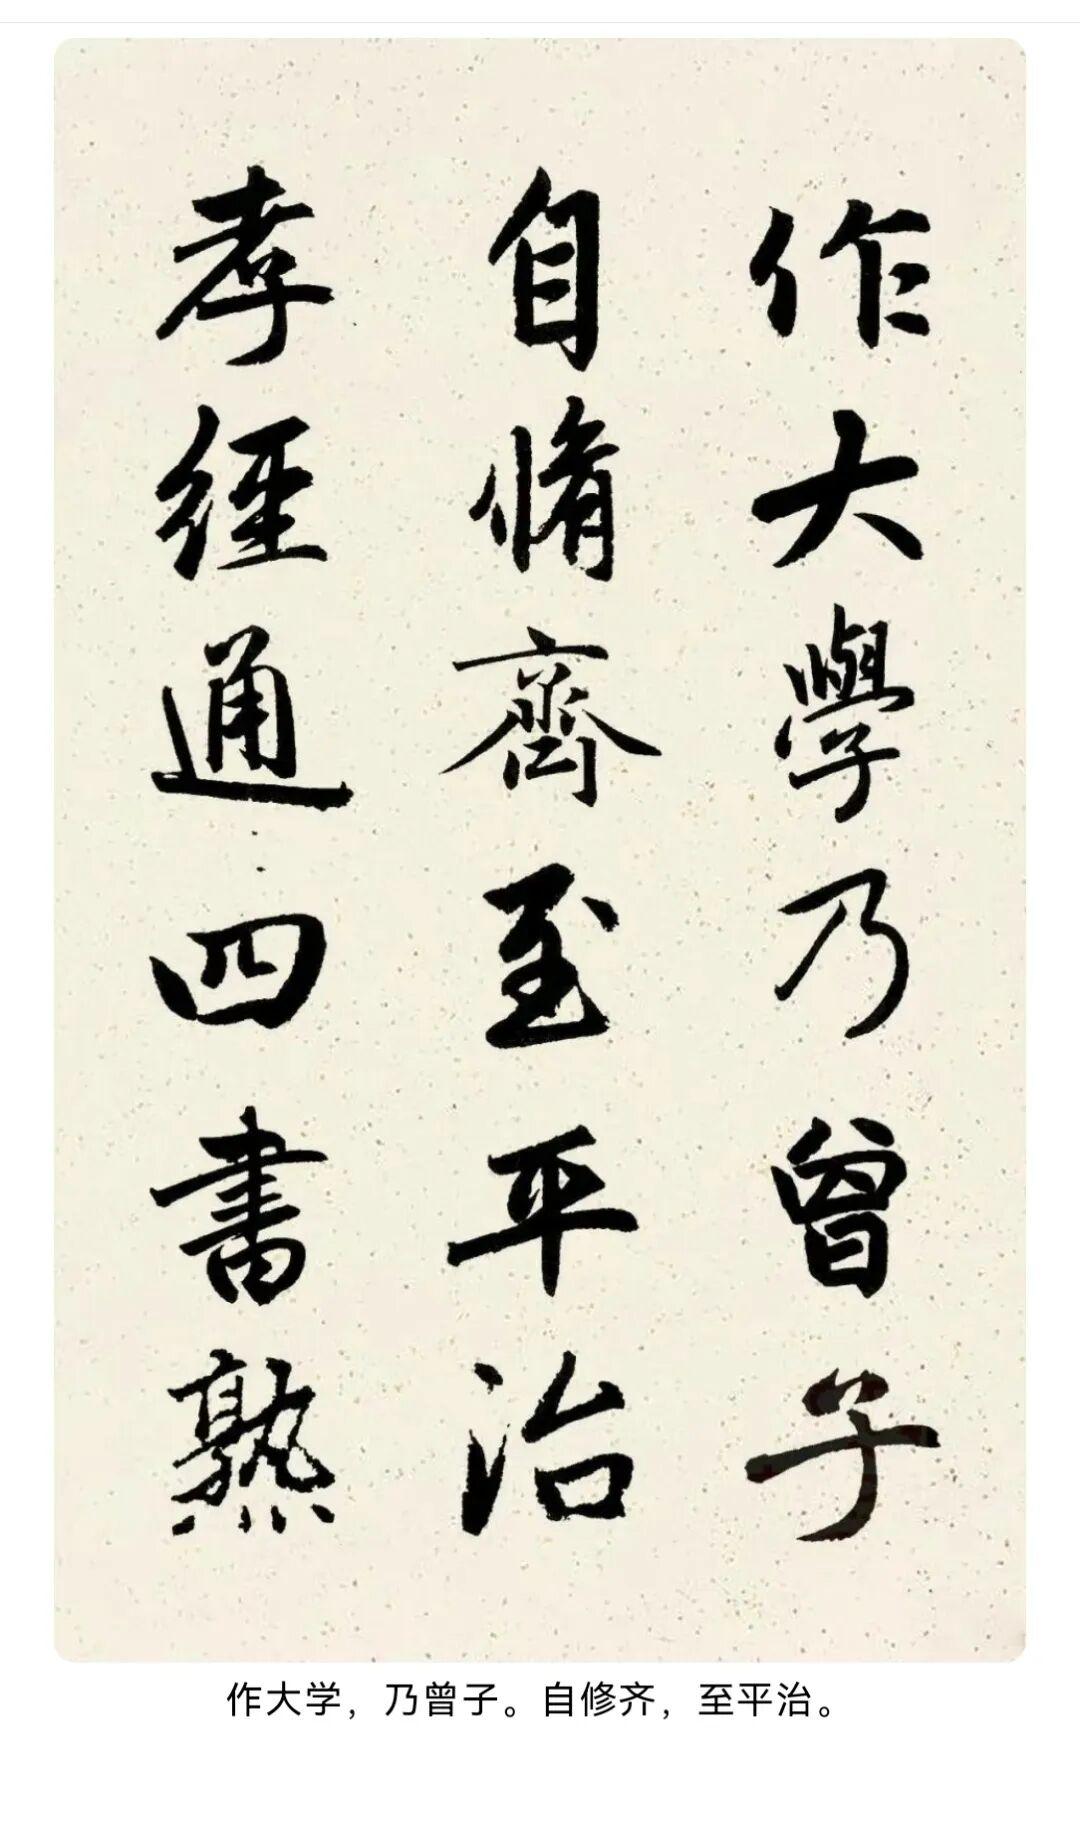 作大學乃曾子
自脩齊至平治
孝經通四書熟
作大学，乃曾子。自修齐，至平治。